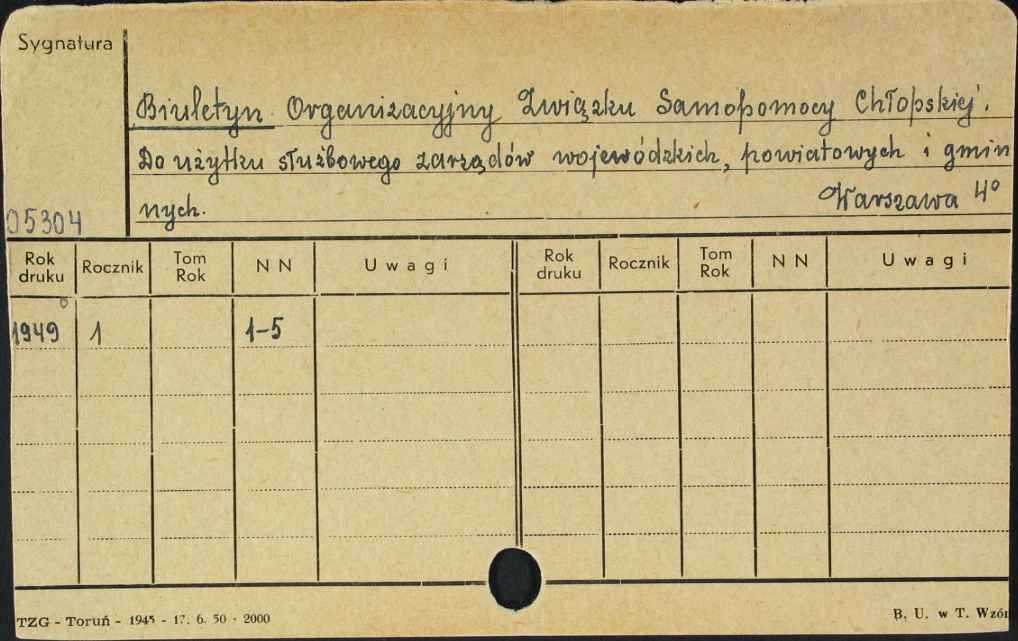 Sygnatura
Biuletyn Organizacyjny Związku Samopomocy Chłopskiej.
Do użytku służbowego zarządów wojewódzkich, powiatowych i gmin
nych.
Warszawa 4°
05304
Rok druku Rocznik Tom Rok NN Uwagi Rok druku Rocznik Tom Rok NN Uwagi
1949 1 1-5
TZG - Toruń - 1945 - 17. 6. 50 - 2000 B. U. w T. Wzór